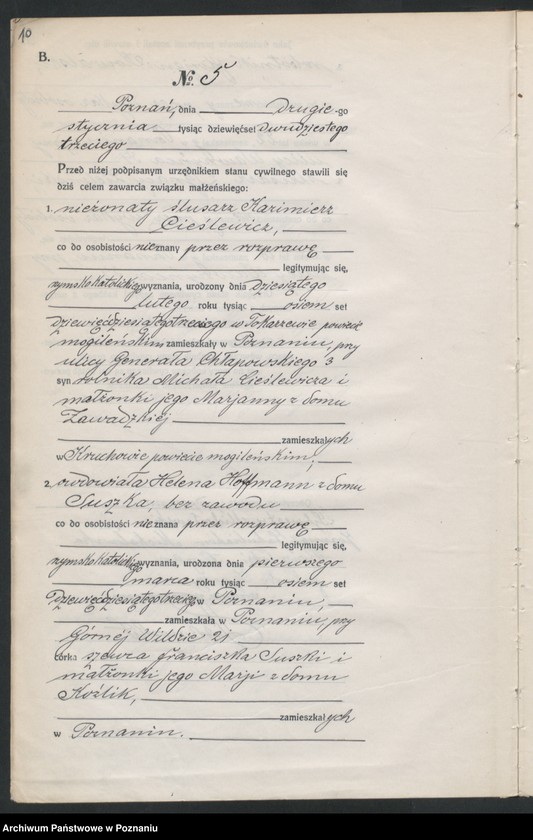 10
B.
No. 5
Poznań, dnia drugie-go
stycznia tysiąc dziewięćset dwudziestego
trzeciego
Przed niżej podpisanym urzędnikiem stanu cywilnego stawili się
dziś celem zawarcia związku małżeńskiego:
1. nieżonaty ślusarz Kazimierz
Cieślewicz,
co do osobistości nieznany przez rozprawę
legitymując się,
rzymsko katolickiego wyznania, urodzony dnia dziesiątego
lutego roku tysiąc osiem set
dziewięćdziesiątegotrzeciego w Tokarzewie powiecie
mogileńskim zamieszkały w Poznaniu, przy
ulicy Generała Chłapowskiego 3
syn rolnika Michała Cieślewicza i
małżonki jego Marjanny z domu
Zawadzkiej
zamieszkałych
w Kruchowie powiecie mogileńskim,
2. owdowiała Helena Hoffmann z domu
Suszka, bez zawodu
co do osobistości nieznana przez rozprawę
legitymując się,
rzymsko katolickiego wyznania, urodzona dnia pierwszego
marca roku tysiąc osiem set
Dziewięćdziesiątegotrzeciego w Poznaniu,
zamieszkała w Poznaniu, przy
Górnej Wildzie 21
córka szewca Franciszka Suszki i
małżonki jego Marji z domu
Koźlik,
zamieszkałych
w Poznaniu.
Archiwum Państwowe w Poznaniu